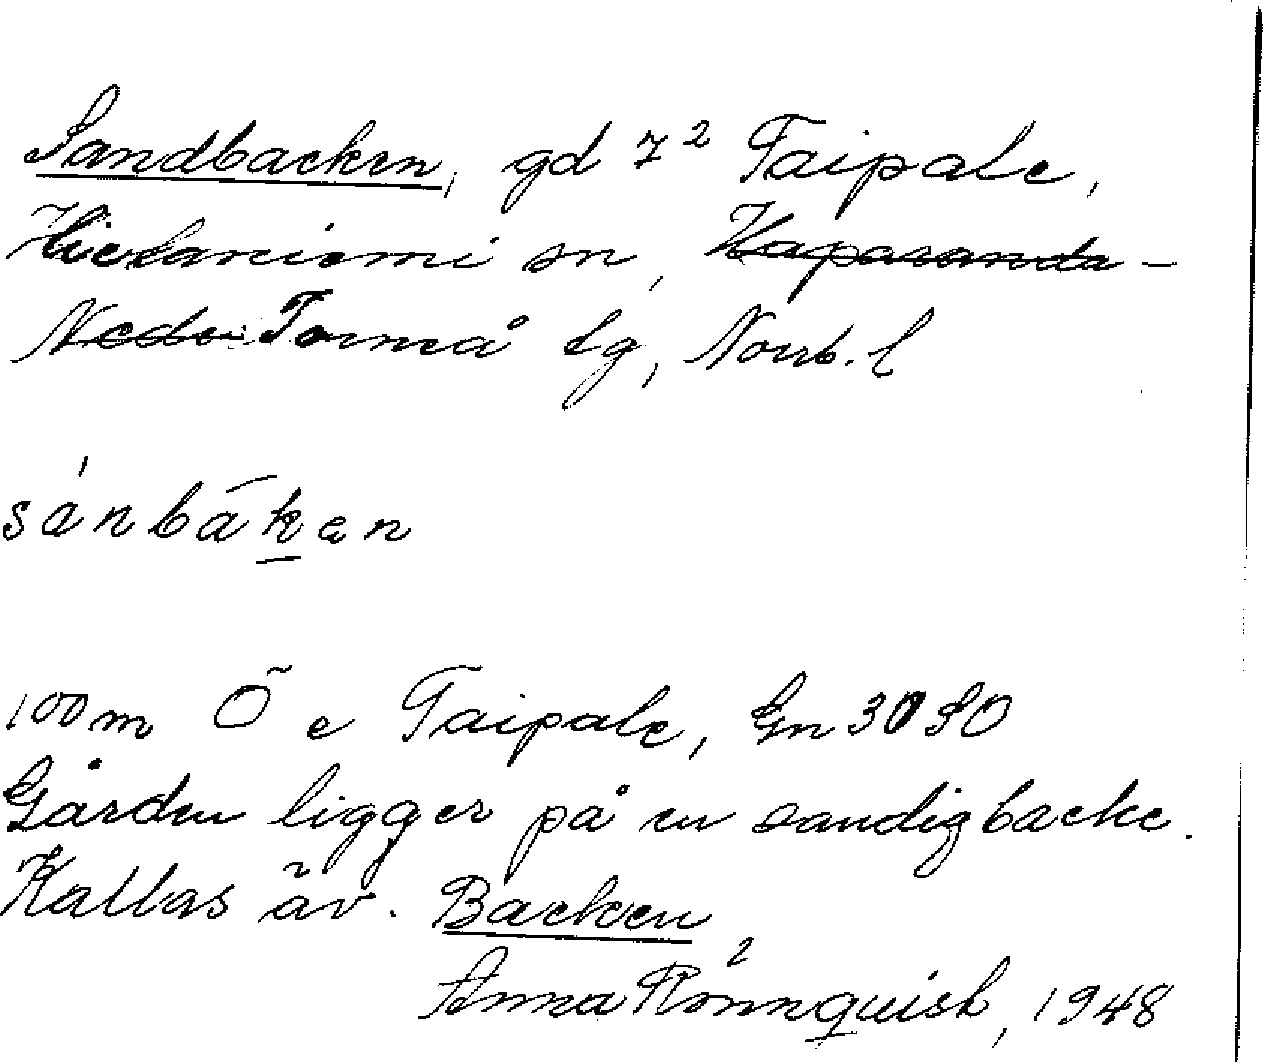 Sandbacken, gd 7² Taipale,
Hietaniemi sn, Kaparanda-
Neder Torneå tg, Norrb. l
sánbāḵen
100 m Ö e Taipale, Gn 30 SO
Gården ligger på en sandig backe.
Kallas äv. Backen
Anna Rönnquist, 1948